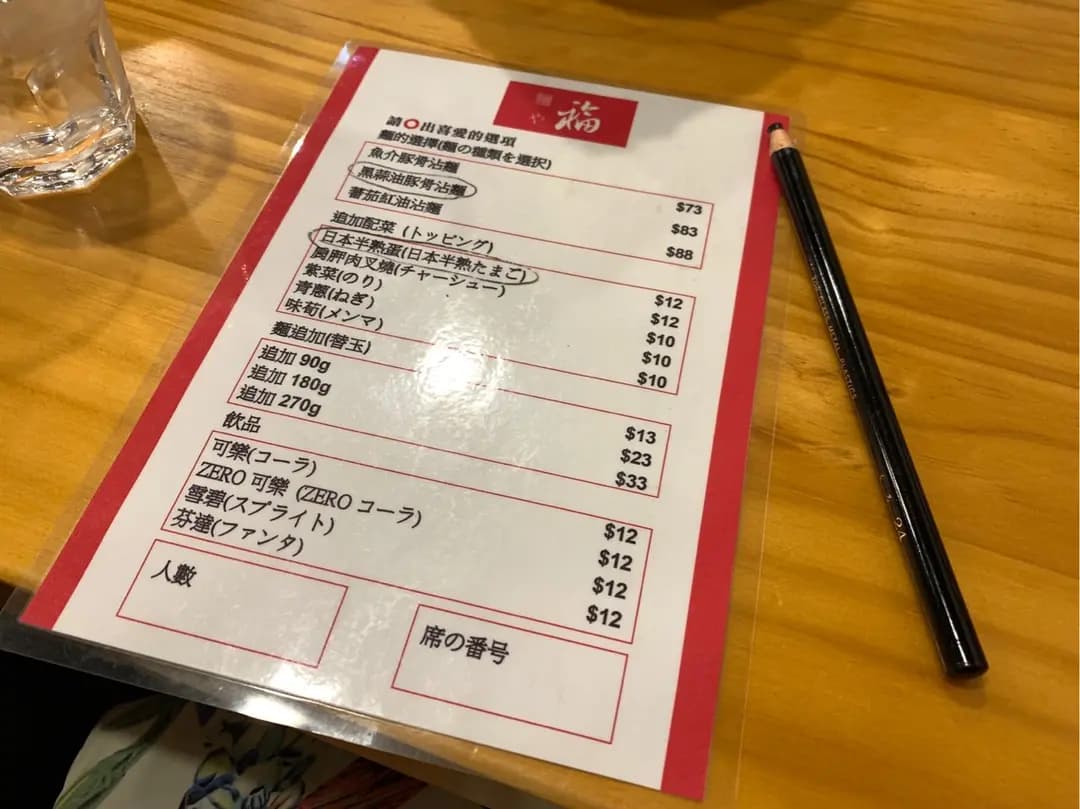 福
や
請⭕出喜愛的選項
麵的選擇(麵の種類を選択)
魚介豚骨沾麵 $73
黑蒜油豚骨沾麵 $83
蕃茄紅油沾麵 $88
追加配菜 (トッピング)
日本半熟蛋(日本半熟たまご) $12
腩胛肉叉燒(チャーシュー) $12
紫菜(のり) $10
青蔥(ねぎ) $10
味筍(メンマ) $10
麵追加(替玉)
追加 90g $13
追加 180g $23
追加 270g $33
飲品
可樂(コーラ) $12
ZERO 可樂 (ZERO コーラ) $12
雪碧(スプライト) $12
芬達(ファンタ) $12
人數
席の番号